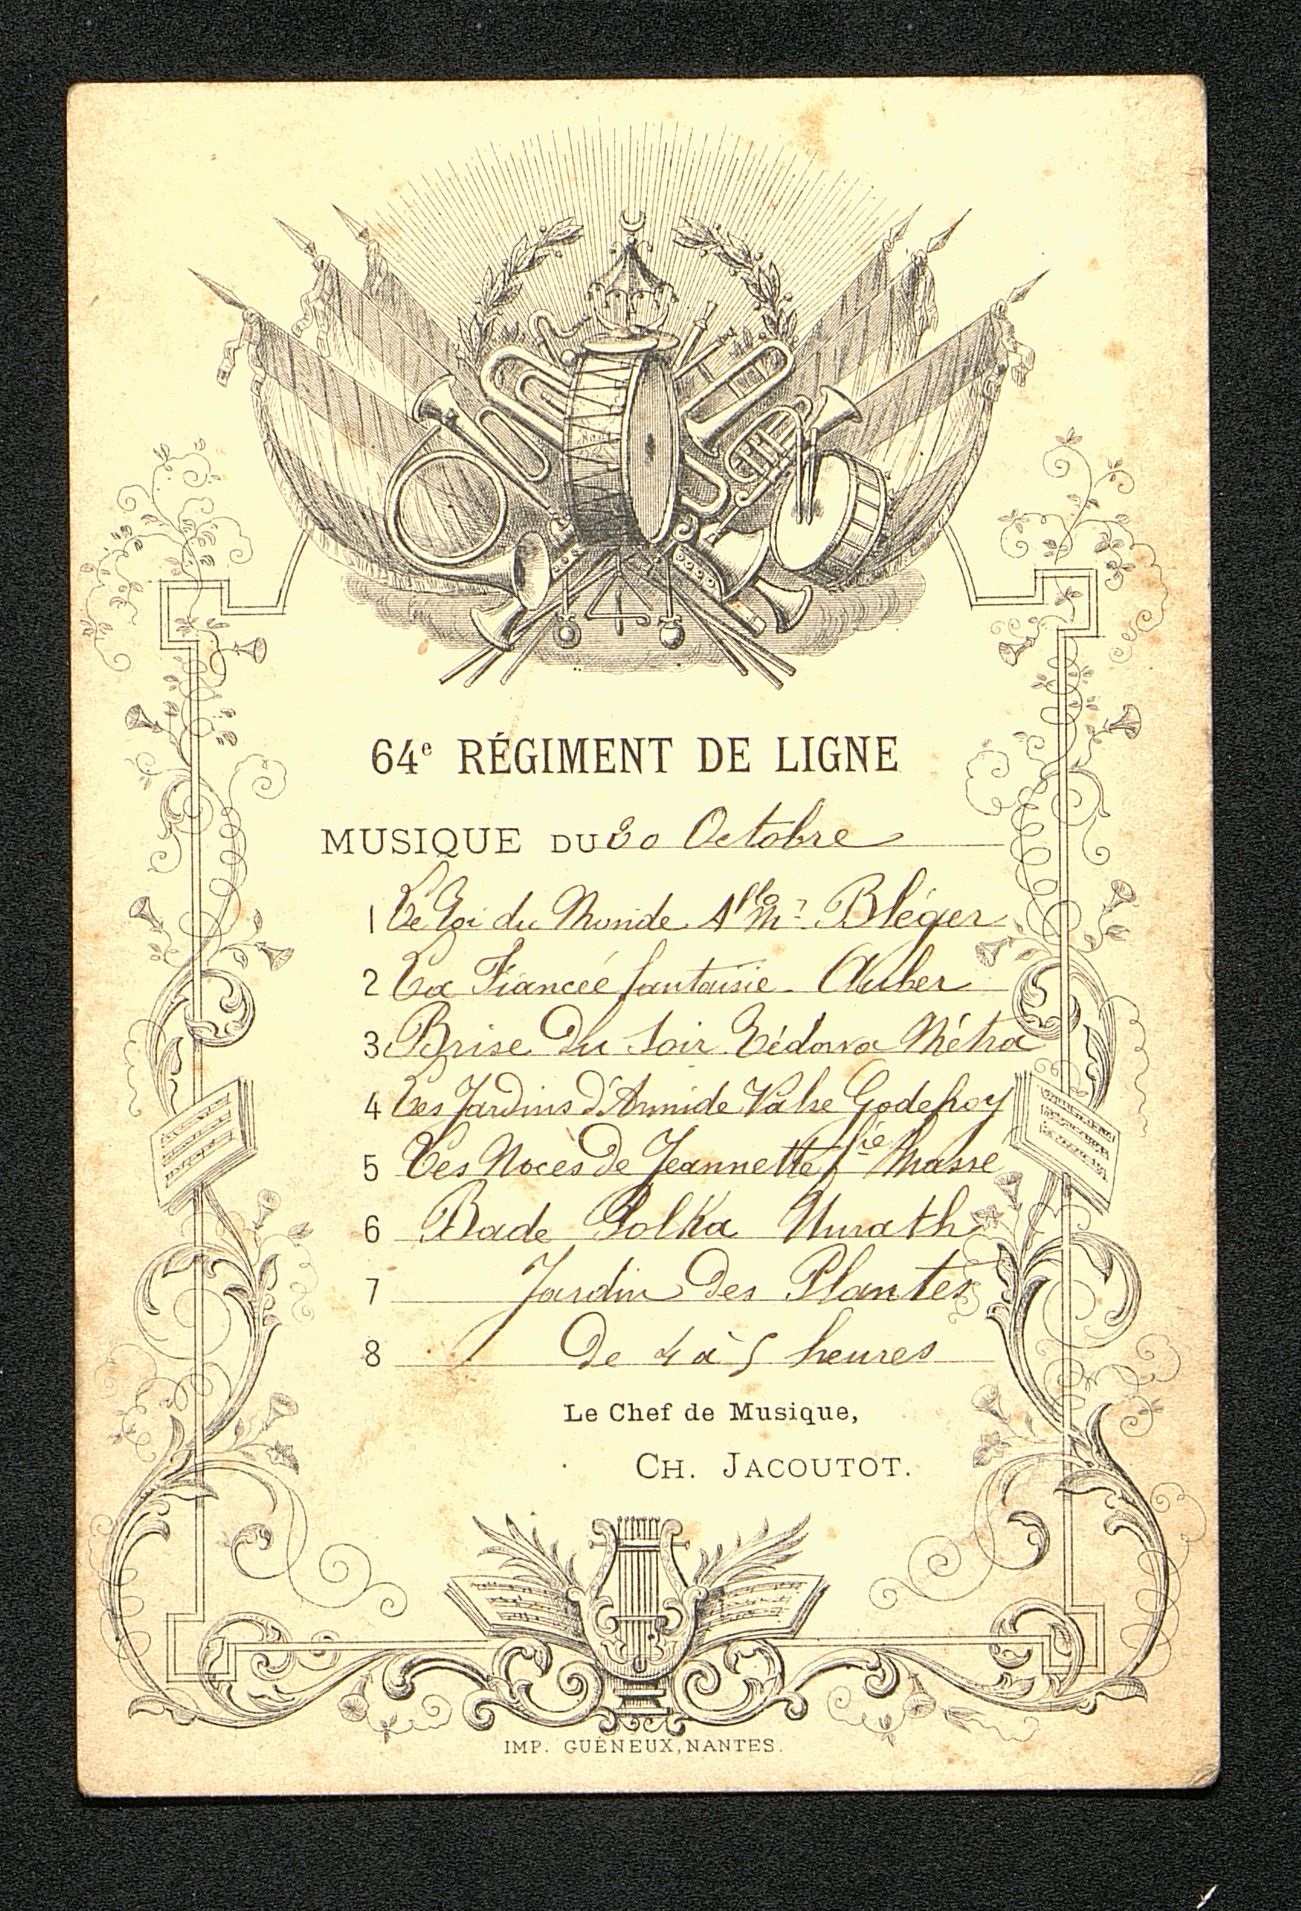 64e RÉGIMENT DE LIGNE
MUSIQUE DU 30 Octobre
1 Le Roi du Monde Allo Mre Bléger
2 La Fiancée fantaisie - Auber
3 Brise du Soir Rédowa Métra
4 Les Jardins d'Armide Valse Godefroy
5 Les Noces de Jeannette fie Masse
6 Bade Polka
7 Jardin des Plantes
8 De 4 à 5 heures
Le Chef de Musique,
CH. JACOUTOT.
IMP. GUÉNEUX, NANTES.